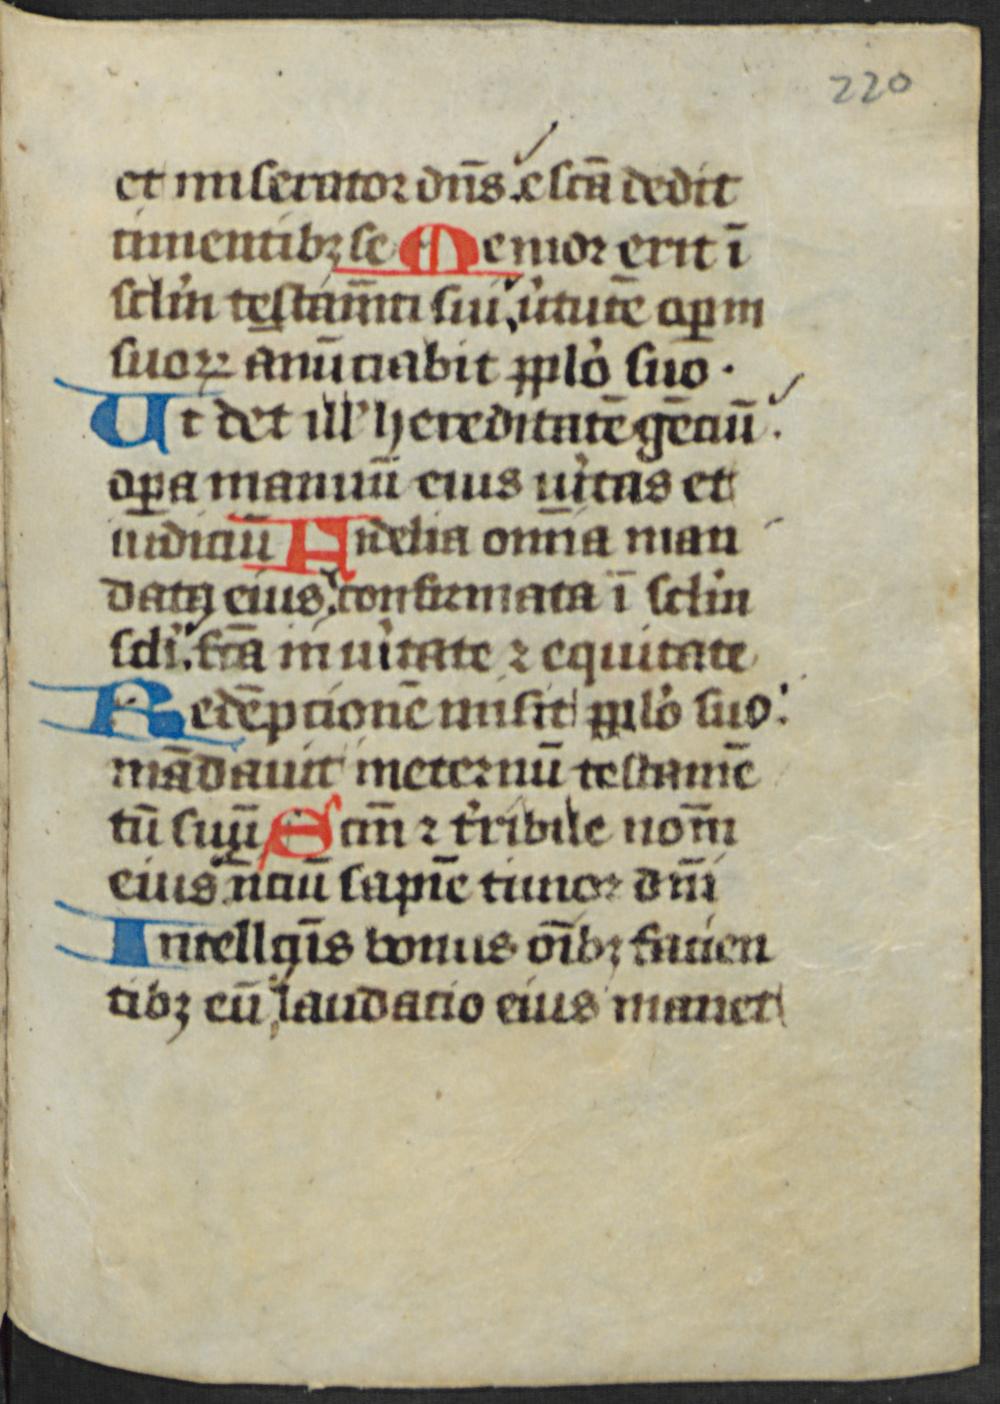 220
et miserator dn̄s. escā dedit
timentibꝫ se Memor erit ī
sclm̄ testam̄ti sui, u'tutē oꝑm
suoꝝ anūciabit pplō suo.
Ut det ill' hereditatē gēciū.
oꝑa manuū eius u'itas et
iudiciū Fidelia omīa man
data eius, confirmata ī sclm̄
scli. fc̄a in u'itate ⁊ equitate
Redēpcionē misit pplō suo:
mādauit ineternū testamē
tū suū Scm̄ ⁊ t'ribile nom̄
eius īiciū sapīe timor dn̄i
Intellc̄us bonus oībꝫ facien
tibꝫ eū, laudatio eius manet